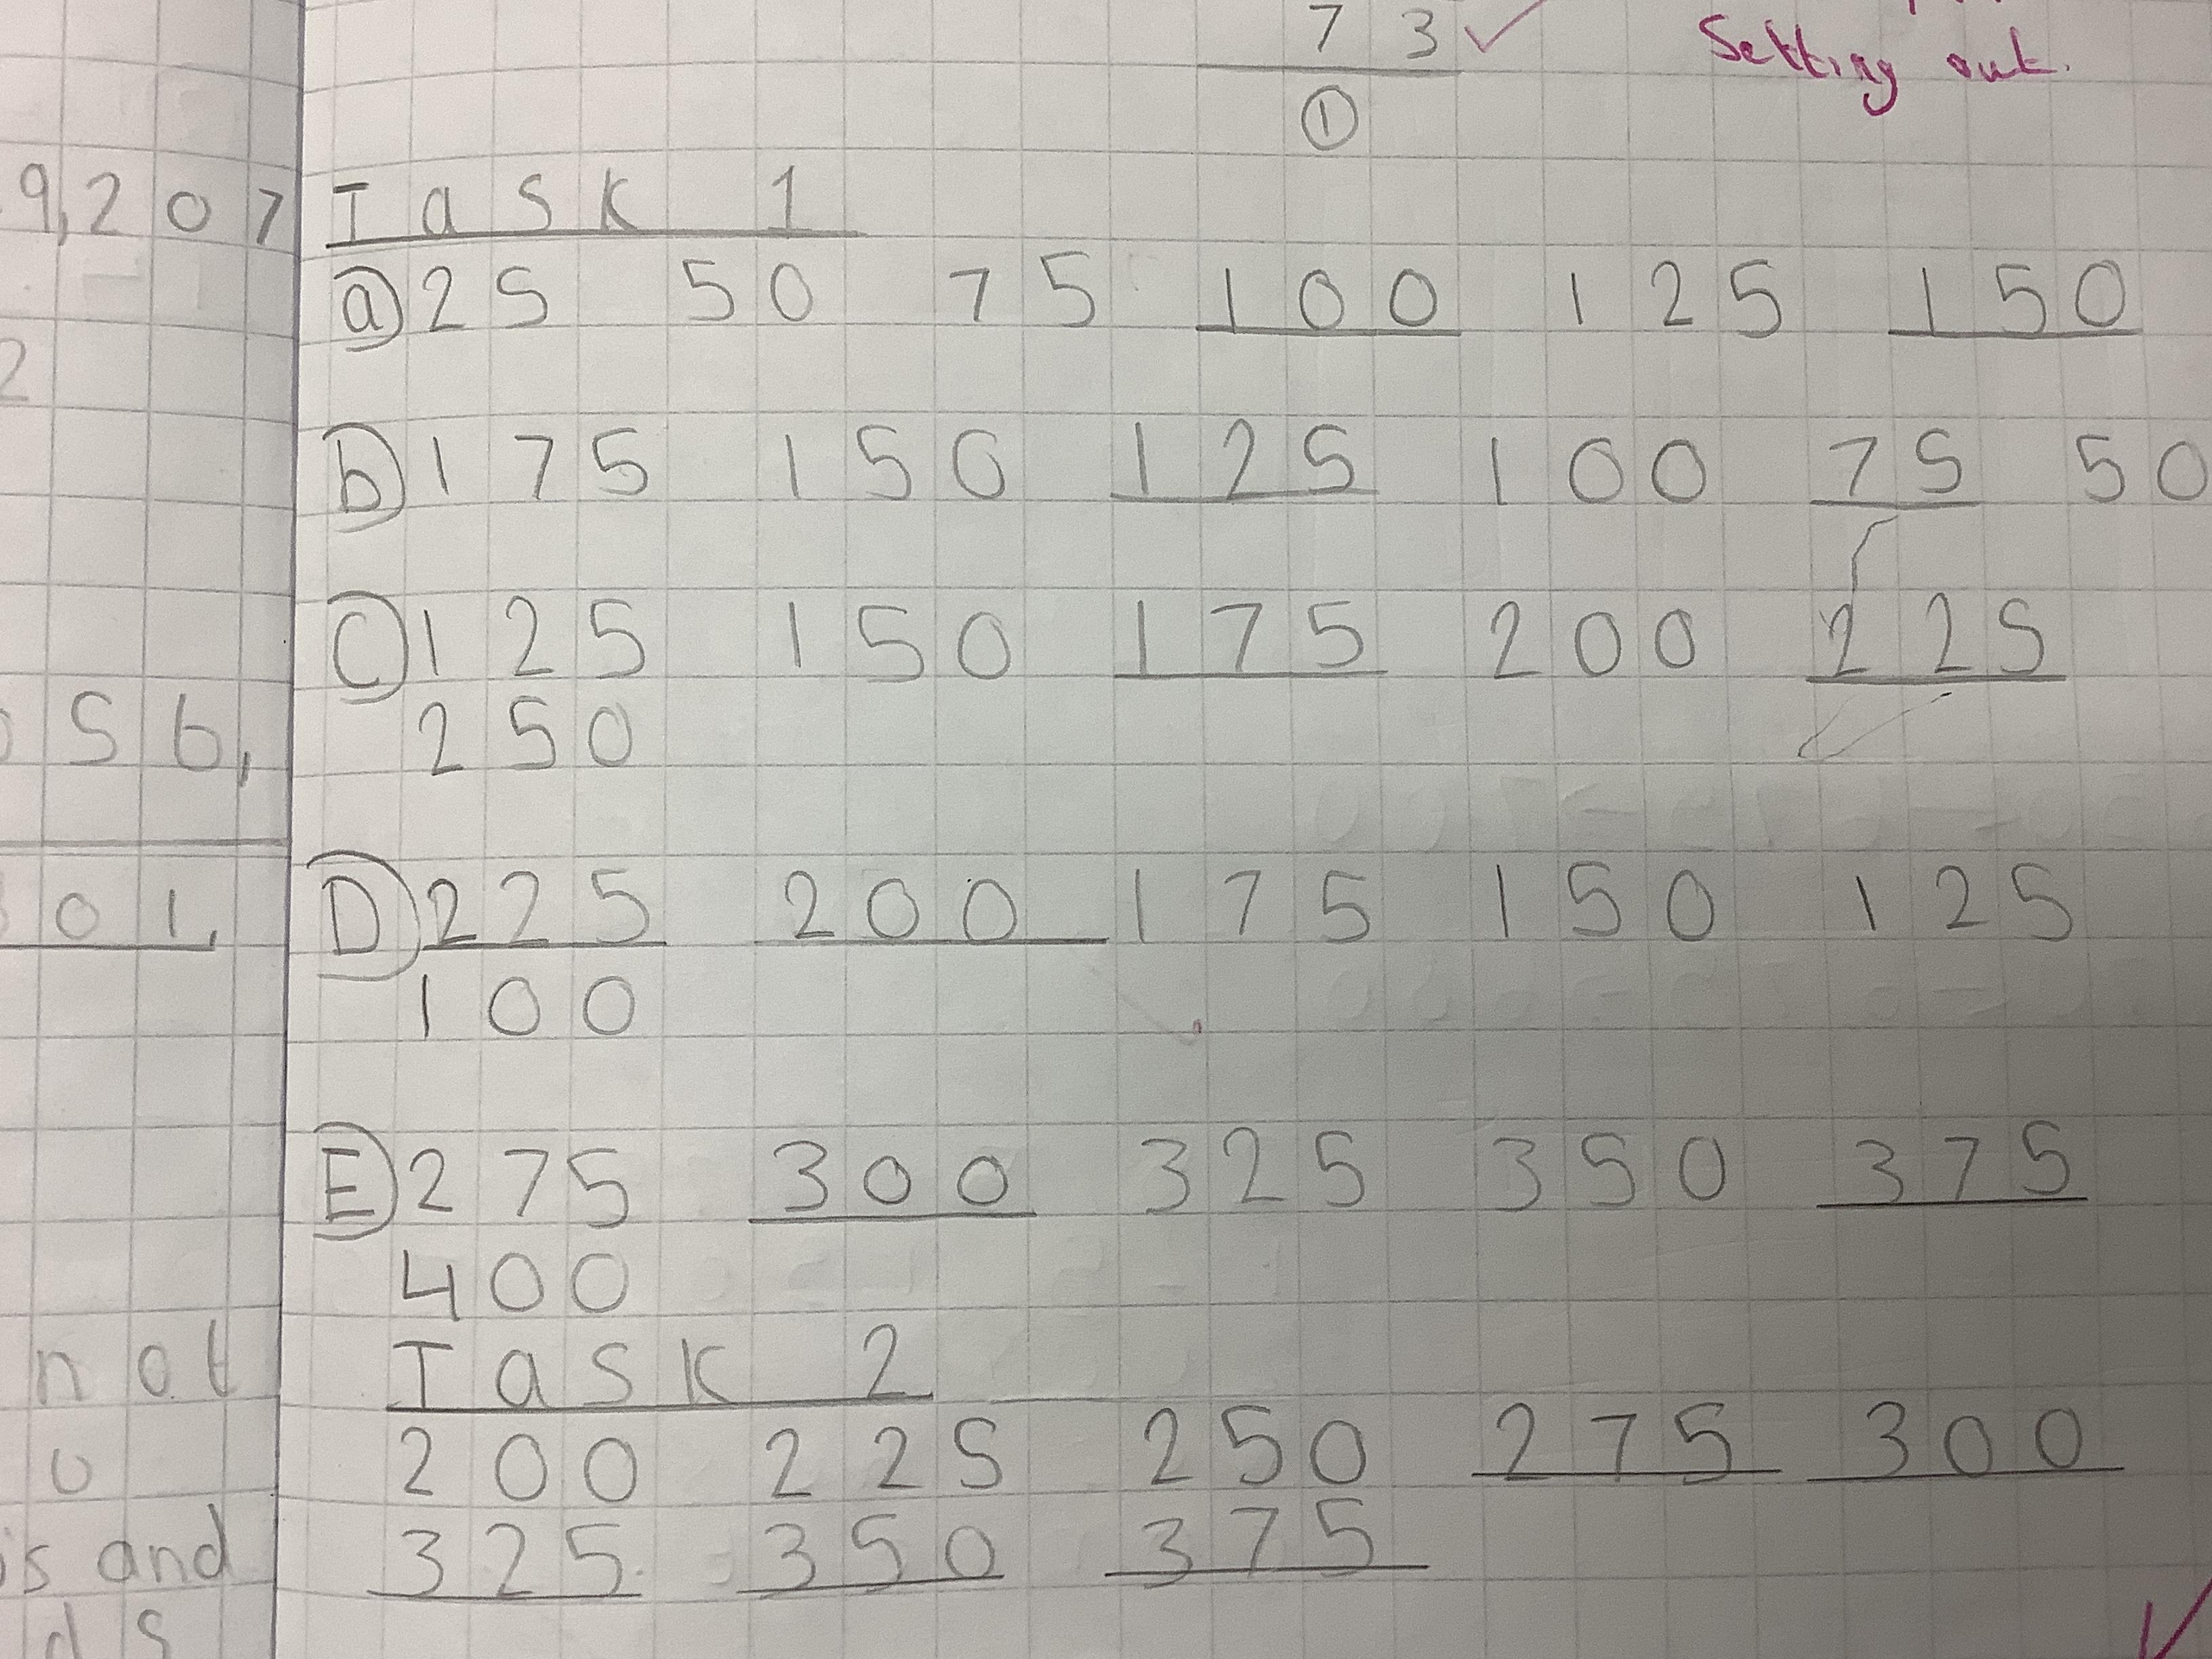 7 3 ✓
Setting out.
①
9,207
2
56,
01,
not
0
is and
ds
Task 1
a) 25 50 75 100 125 150
b) 175 150 125 100 75 50
C) 125 150 175 200 225
250
D) 225 200 175 150 125
100
E) 275 300 325 350 375
400
Task 2
200 225 250 275 300
325 350 375